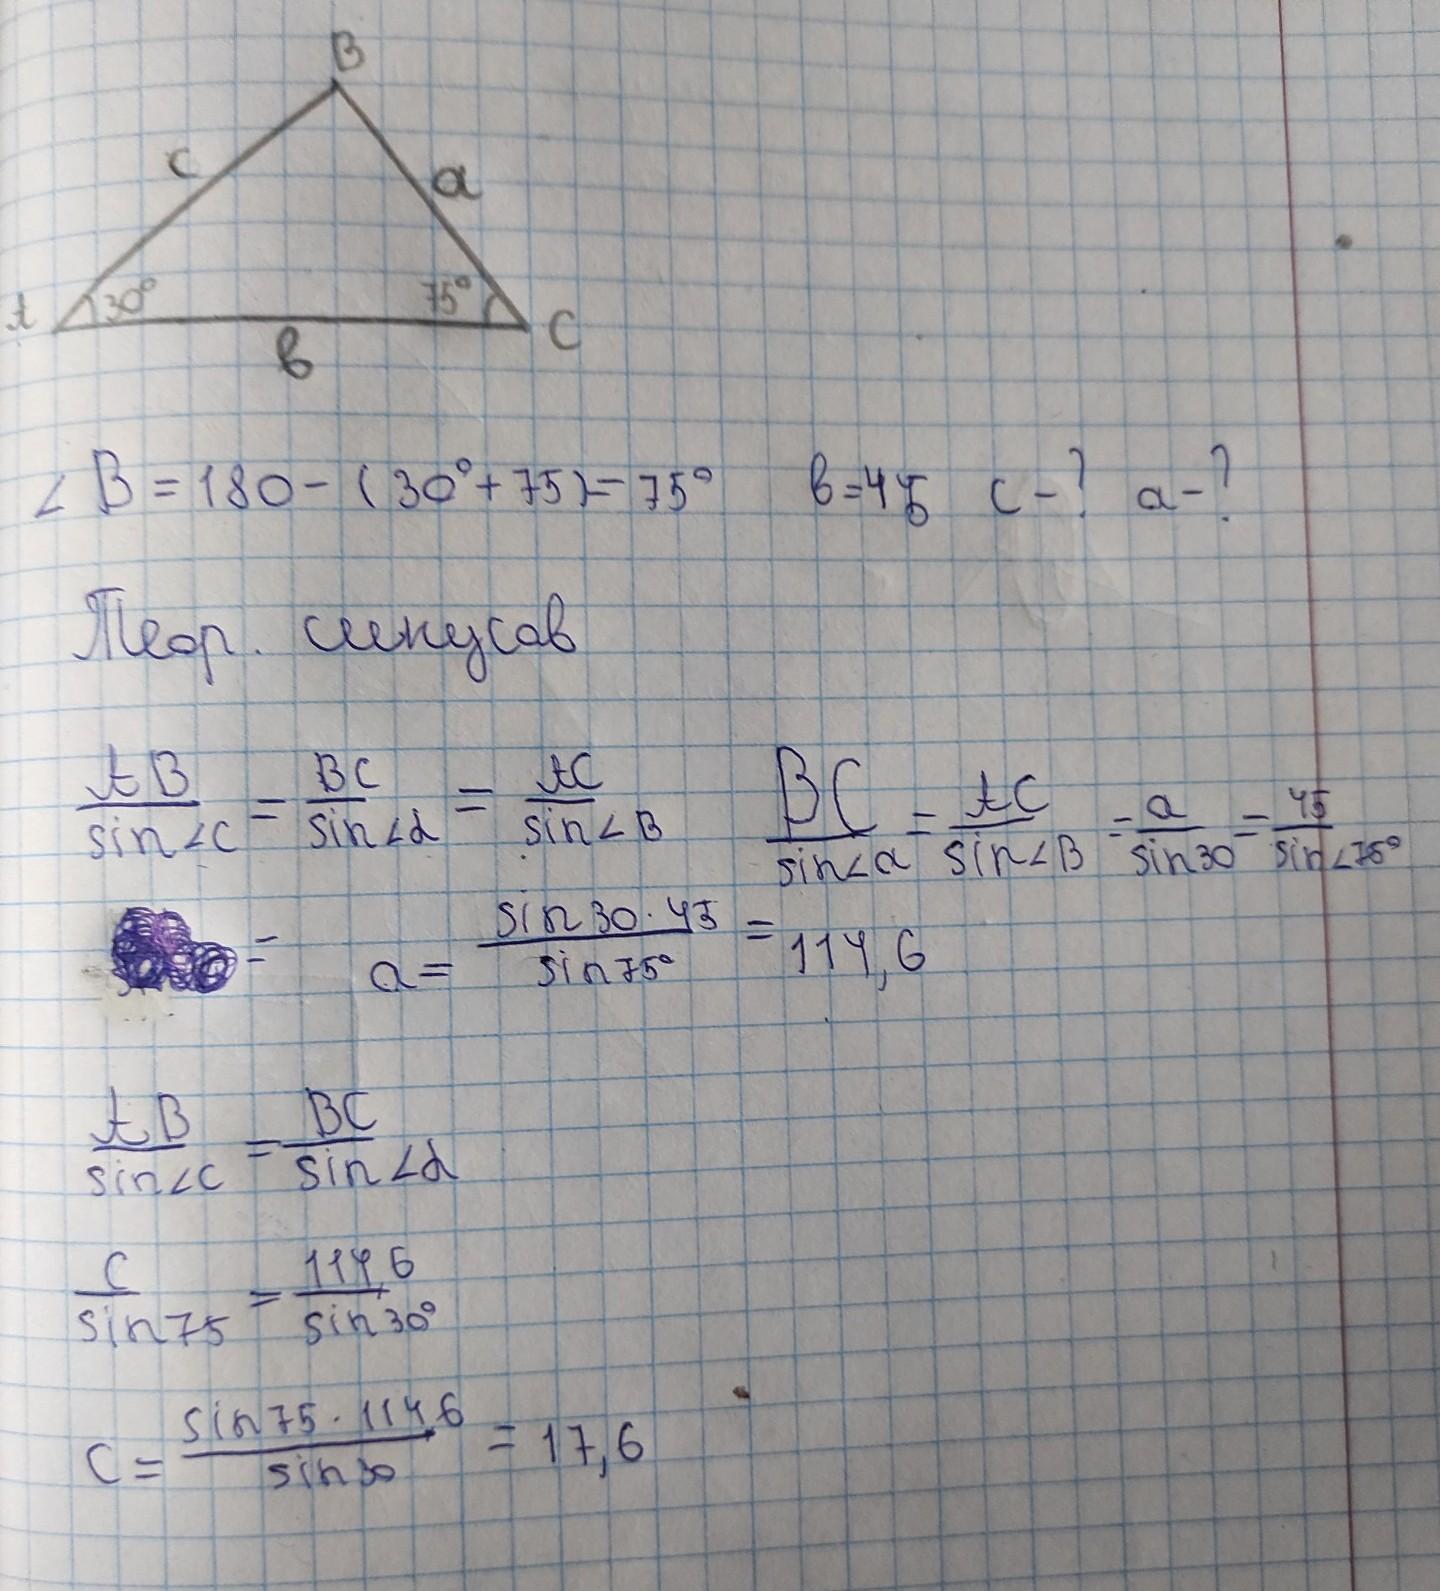 B
c a
A 30° 75° C
в
∠B=180-(30°+75)=75° в=45 c-? a-?
Теор. синусов
AB/sin∠C = BC/sin∠α = AC/sin∠B BC/sin∠a = AC/sin∠B = a/sin30 = 45/sin∠75°
= a= sin30·45/sin75° = 114,6
AB/sin∠C = BC/sin∠α
c/sin75 = 114,6/sin30°
C= sin75·114,6/sin30 = 17,6